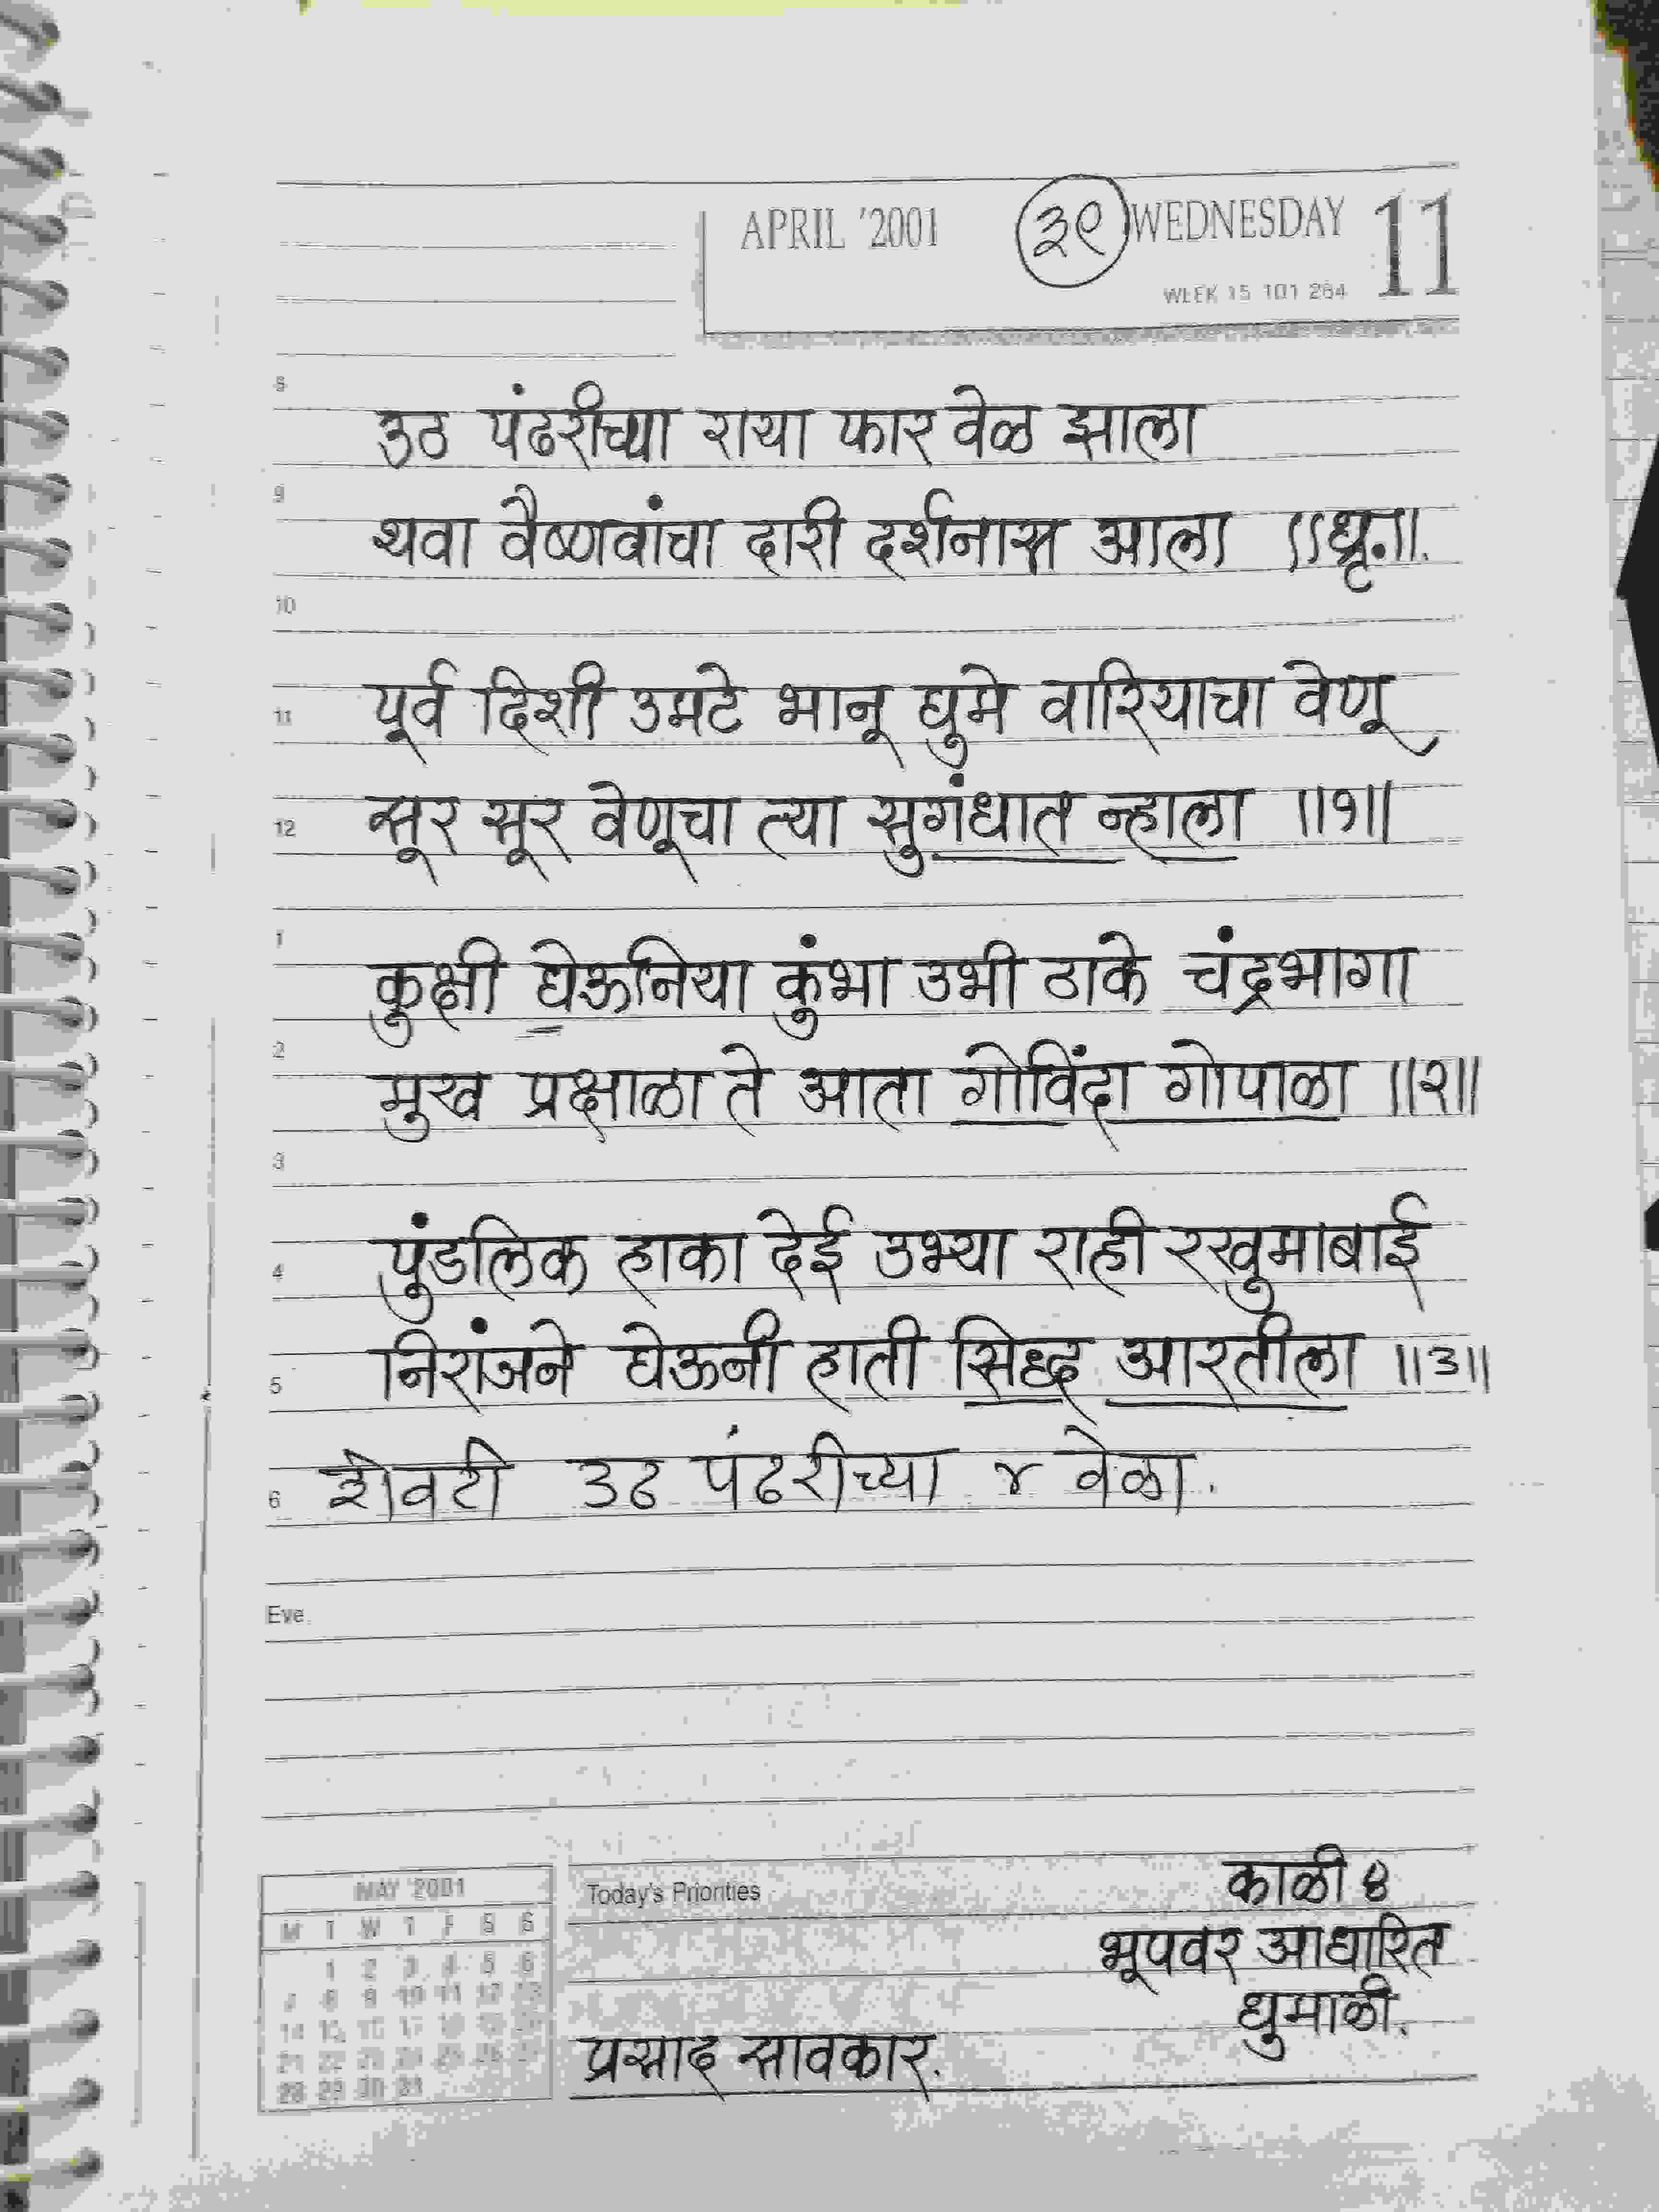 APRIL '2001 ३९ WEDNESDAY 11
WEEK 15 101 264
8
उठ पंढरीच्या राया फार वेळ झाला
9
थवा वैष्णवांचा दारी दर्शनास आला ॥धृ.॥.
10
11 पूर्व दिशी उमटे भानू घुमे वारियाचा वेणू
12 सूर सूर वेणूचा त्या सुगंधात न्हाला ॥१॥
1
कुक्षी घेऊनिया कुंभा उभी ठाके चंद्रभागा
2
मुख प्रक्षाळा ते आता गोविंदा गोपाळा ॥२॥
3
4 पुंडलिक हाका देई उभ्या राही रखुमाबाई
5 निरांजने घेऊनी हाती सिद्ध आरतीला ॥३॥
6 शेवटी उठ पंढरीच्या ४ वेळा.
Eve.
MAY 2001
M T W T F S S
1 2 3 4 5 6
7 8 9 10 11 12 13
28 29 30 31
Today's Priorities
काळी ४
भूपवर आधारित
धुमाळी.
प्रसाद सावकार.